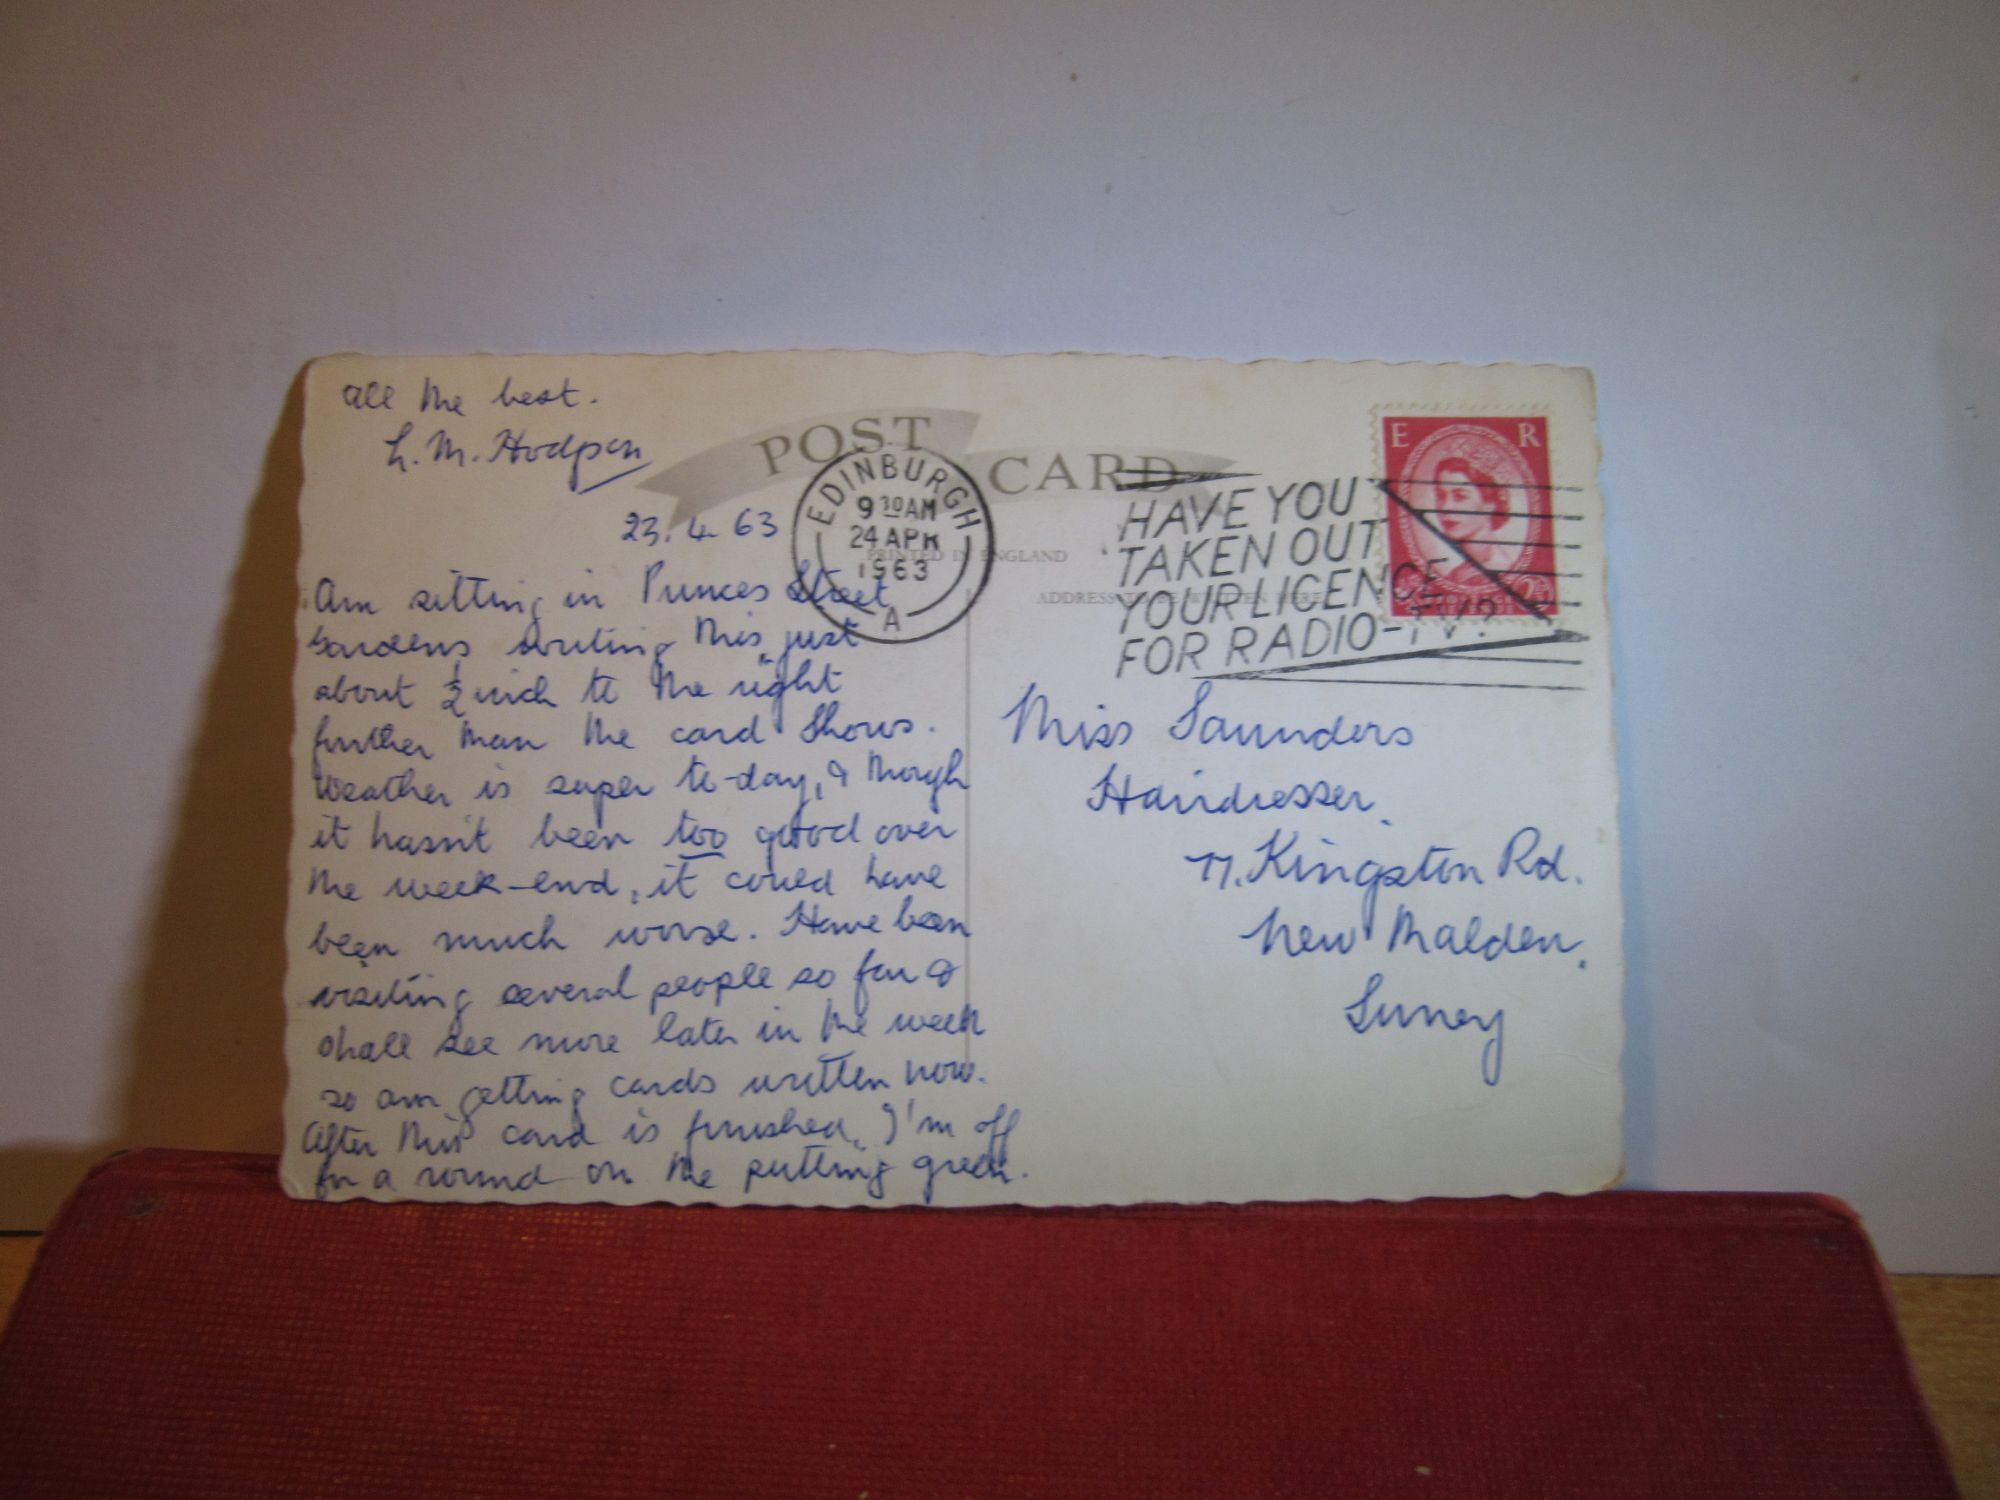 All the best.
L. M. Hodgson
POST CARD
23.4.63
EDINBURGH
9 30 AM
24 APR
1963
A
PRINTED IN ENGLAND
ADDRESS TO BE WRITTEN HERE
HAVE YOU
TAKEN OUT
YOUR LICENCE
FOR RADIO-TV?
E R
Am sitting in Princes Street
Gardens writing this, just
about ½ inch to the right
further than the card shows.
Weather is super to-day, & though
it hasn't been too good over
the week-end, it could have
been much worse. Have been
visiting several people so far &
shall see more later in the week
so am getting cards written now.
After this card is finished, I'm off
for a round on the putting green.
Miss Saunders
Hairdresser,
77. Kingston Rd.
New Malden,
Surrey